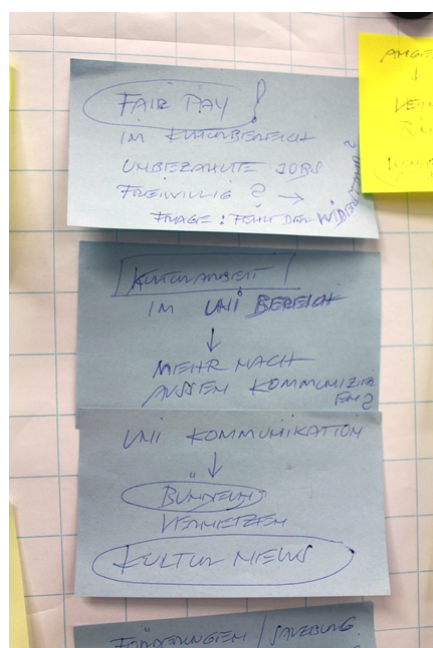 FAIR PAY!
IM KULTURBEREICH
UNBEZAHLTE JOBS
FREIWILLIG? →
FRAGE: FEHLT DER
KULTURARBEIT
IM UNI BEREICH
↓
MEHR NACH
AUSSEN KOMMUNIZIER
EN?
UNI KOMMUNIKATION
↓
BÜNDELUNG
VERNETZEN
KULTUR NEWS
FÖRDERUNGEN / SALZBURG